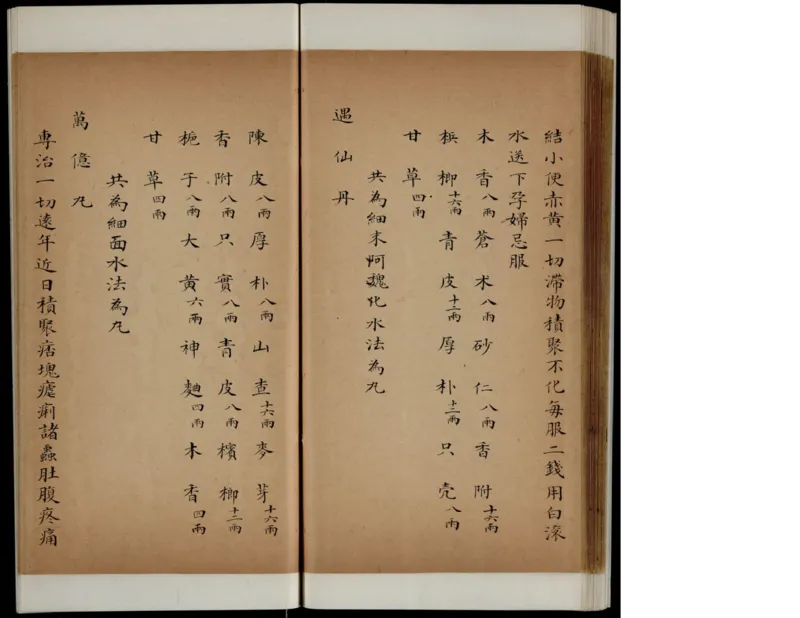 結小便赤黃一切滯物積聚不化每服二錢用白滾
水送下孕婦忌服
木香八兩蒼朮八兩砂仁八兩香附十六兩
檳榔十六兩青皮十二兩厚朴十二兩只壳八兩
甘草四兩
共為細末阿魏化水法為丸
遇仙丹
陳皮八兩厚朴八兩山查十六兩麥芽十六兩
香附八兩只實八兩青皮八兩檳榔十二兩
梔子八兩大黃六兩神麯四兩木香四兩
甘草四兩
共為細面水法為丸
萬億丸
專治一切遠年近日積聚痞塊瘧痢諸蟲肚腹疼痛